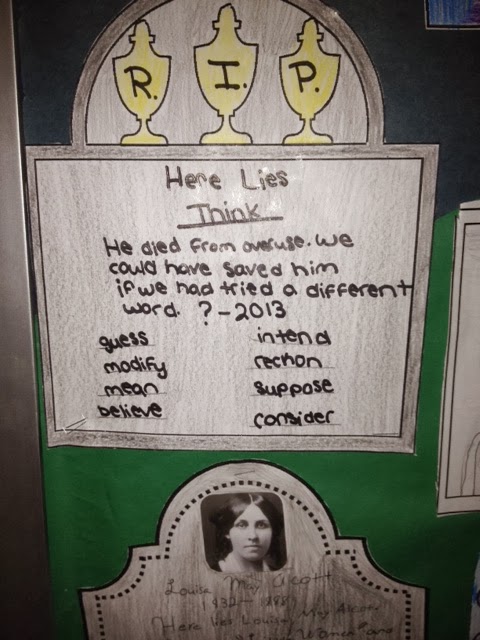 R. I. P.
Here Lies
Think
He died from overuse. we
could have saved him
if we had tried a different
word. ? - 2013
guess intend
modify reckon
mean suppose
believe consider
Louisa May Alcott
(1832-1888)
Here lies Louisa May Alcott
Women